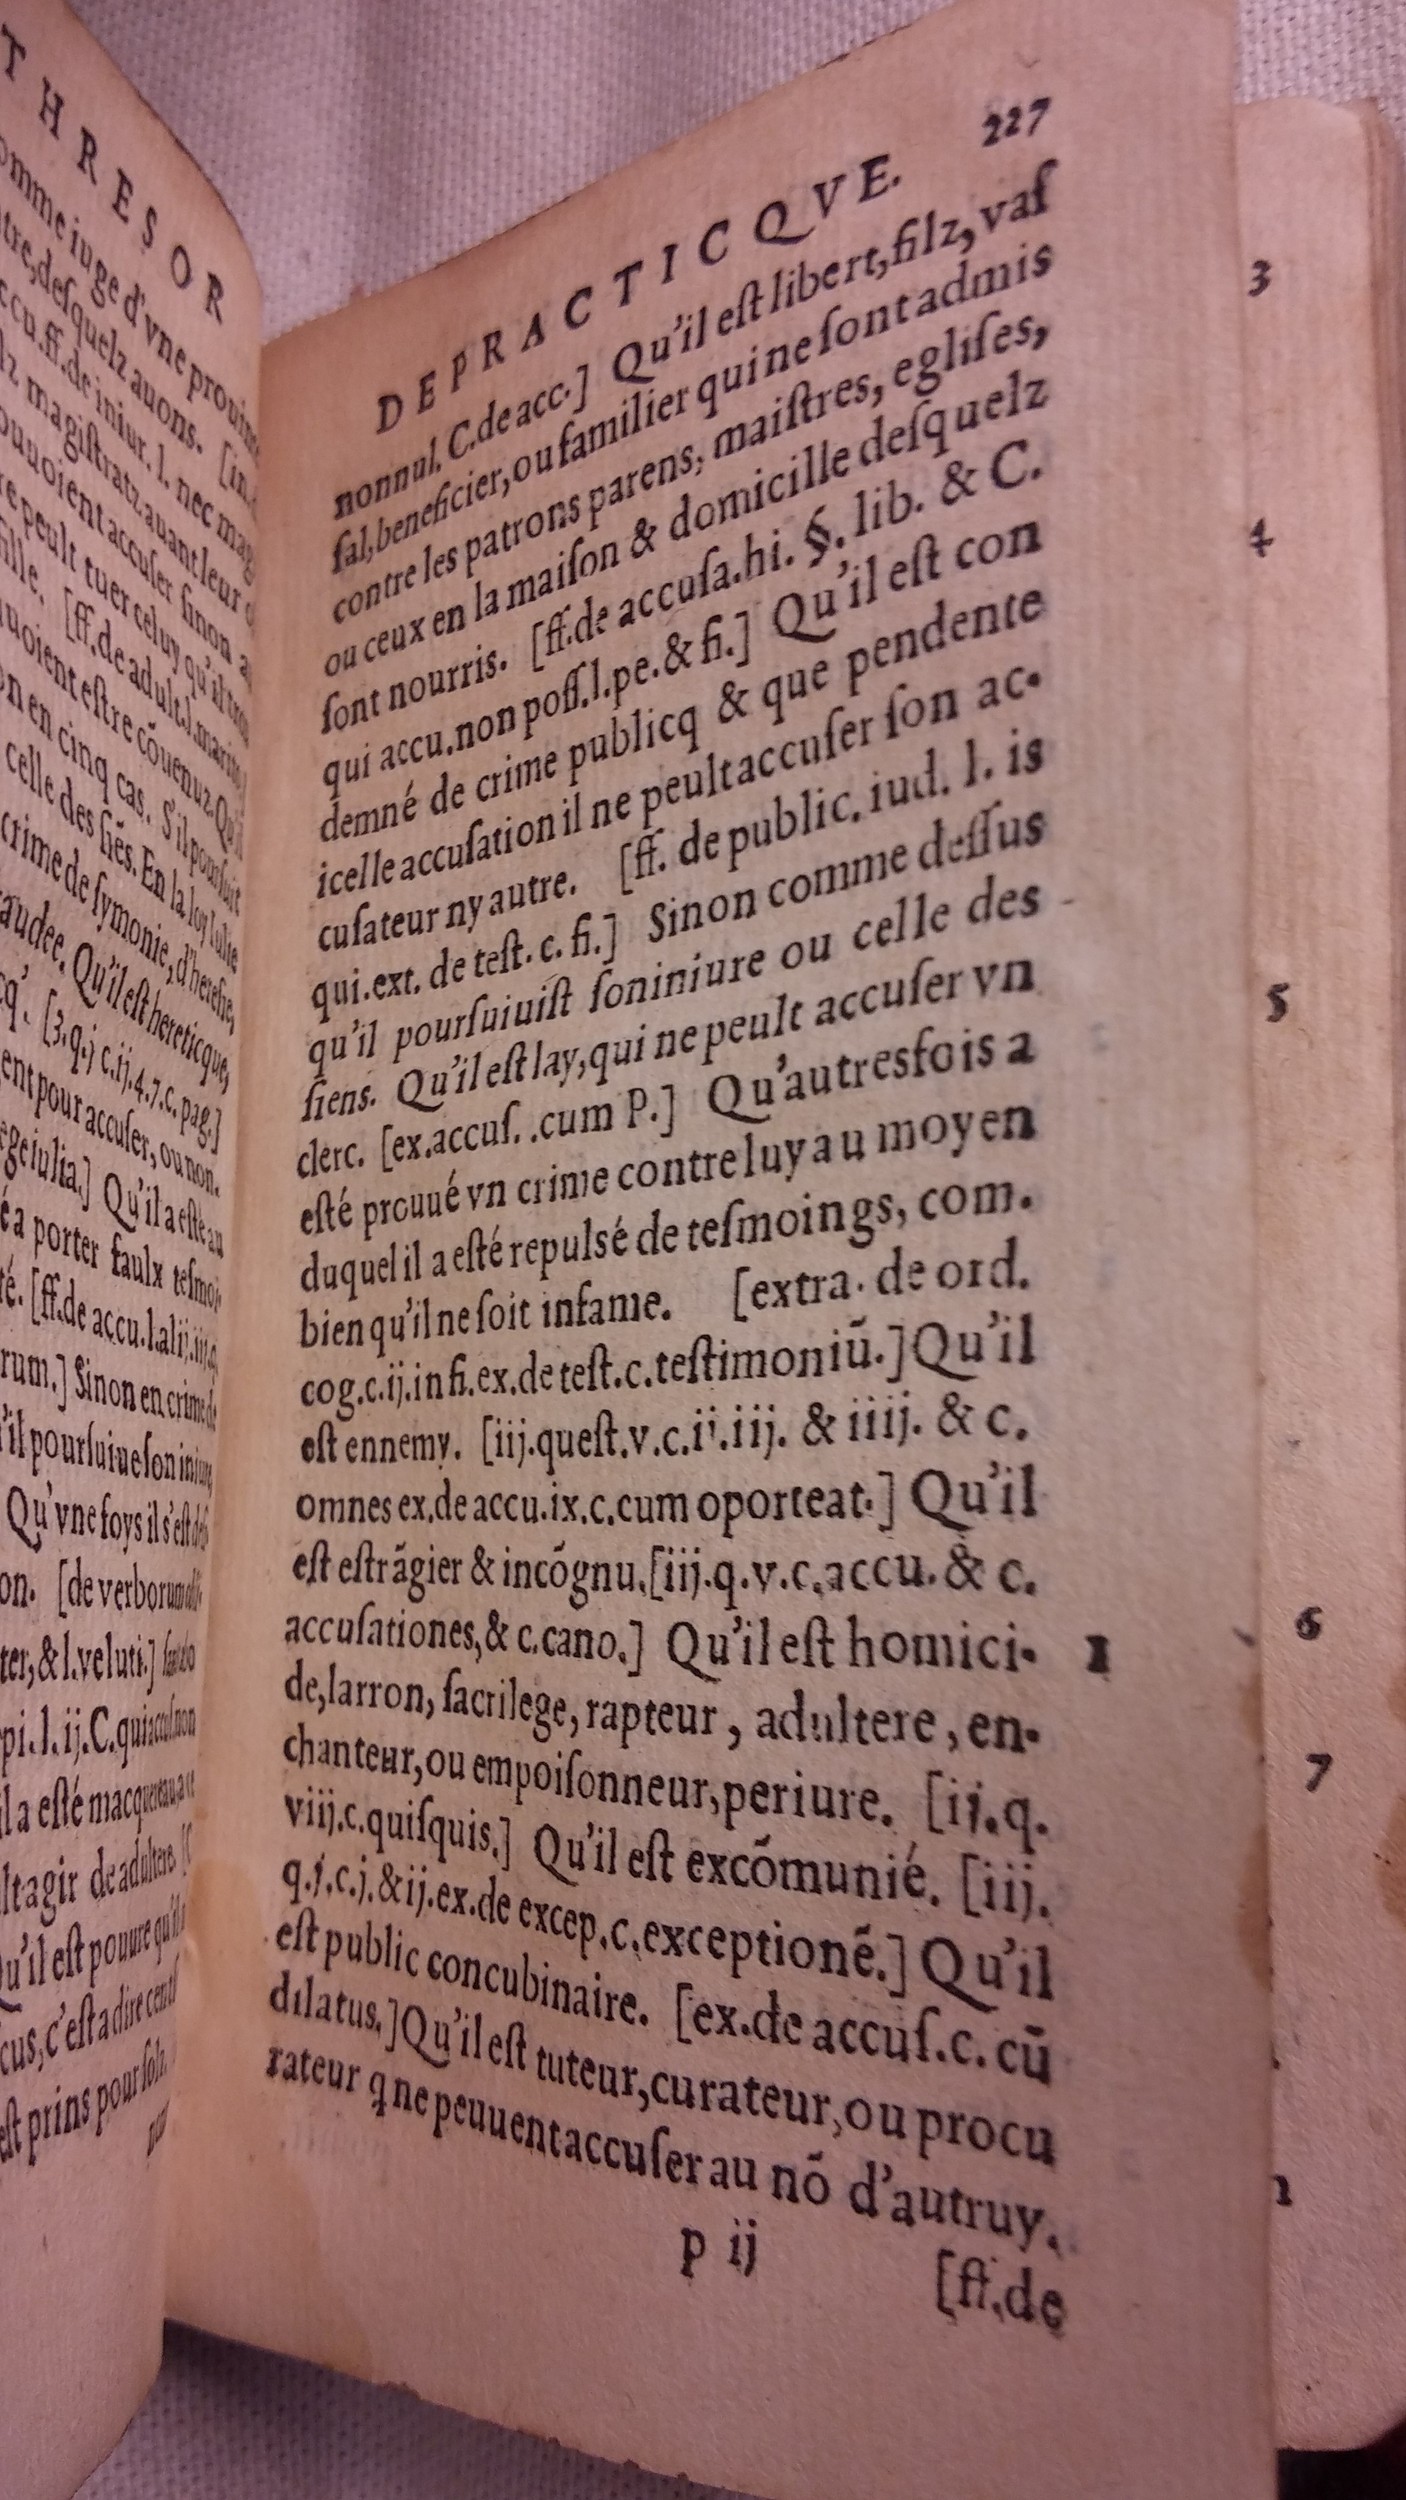 THRESOR
omme iuge d'vne prouin
tre, desquelz auons. [in.
ccu.ff.de iniur. l. nec mag
lz magistratz auant leur
ouuoient accuser sinon a
re peult tuer celuy qu'il trou
fille. [ff.de adult.l.marito
uuoient estre cōuenuz. Qu'il
on en cinq cas. S'il poursuit
celle des siēs. En la loy Iulie
crime de symonie, d'heresie,
raudee. Qu'il est hereticque,
cq'. [3.q.j c.ij.4.7.c. pag.]
ent pour accuser, ou non.
ege iulia.] Qu'il a esté au
é a porter faulx tesmoi-
té. [ff.de accu.l.alij.iij.q.
rum.] Sinon en crime de
'il poursuiue son iniure
Qu'vne foys il s'est
on. [de verborum
ter, & l.veluti.]
pi.l.ij.C.qui accus non
il a esté macquereau, a ce
lt agir de adultere.
Qu'il est pouure qu'il
cus, c'est a dire cent
est prins pour
DE PRACTICQVE. 227
nonnul. C.de acc.] Qu'il est libert, filz, vaſ
ſal, beneficier, ou familier qui ne ſont admis
contre les patrons parens, maiſtres, egliſes,
ou ceux en la maiſon & domicille deſquelz
ſont nourris. [ff.de accuſa.hi. §. lib. & C.
qui accu.non poſſ.l.pe.& fi.] Qu'il eſt con
demné de crime publicq & que pendente
icelle accuſation il ne peult accuſer ſon ac-
cuſateur ny autre. [ff. de public. iud. l. is
qui.ext. de teſt. c. fi.] Sinon comme deſſus
qu'il pourſuiuiſt ſon iniure ou celle des
ſiens. Qu'il eſt lay, qui ne peult accuſer vn
clerc. [ex.accuſ. .cum P.] Qu'autresfois a
eſté prouué vn crime contre luy au moyen
duquel il a eſté repulsé de teſmoings, com-
bien qu'il ne ſoit infame. [extra. de ord.
cog.c.ij.in fi.ex.de teſt.c.teſtimoniū.] Qu'il
eſt ennemy. [iij.queſt.v.c.ij.iij. & iiij. & c.
omnes ex.de accu.ix.c.cum oporteat.] Qu'il
eſt eſtrāgier & incōgnu.[iij.q.v.c.accu. & c.
accuſationes,& c.cano.] Qu'il eſt homici-
de, larron, ſacrilege, rapteur, adultere, en-
chanteur, ou empoiſonneur, periure. [ij.q.
viij.c.quiſquis.] Qu'il eſt excōmunié. [iij.
q.j.c.j.&ij.ex.de excep.c.exceptionē.] Qu'il
eſt public concubinaire. [ex.de accuſ.c. cū
dilatus.] Qu'il eſt tuteur, curateur, ou procu
rateur q ne peuuent accuſer au nō d'autruy.
p ij [ff.de
1
3
4
5
6
7